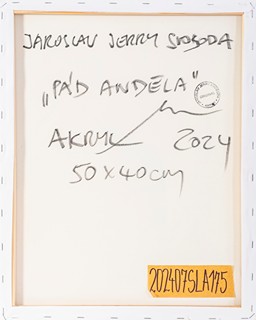 JAROSLAV JERRY SVOBODA
„PÁD ANDĚLA"
AKRYL 2024
50×40cm
202407SLA145